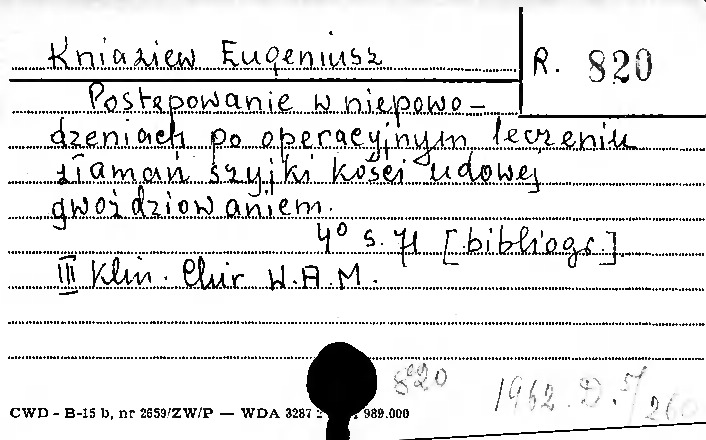 Kniaziew Eugeniusz
R. 820
Postępowanie w niepowo-
dzeniach po operacyjnym leczeniu
złamań szyjki kości udowej
gwoździowaniem.
4° s. 71 [bibliogr.]
III Klin. Chir W.A.M.
820 1962. D. 5/260
CWD - B-15 b, nr 2659/ZW/P — WDA 3287 989.000